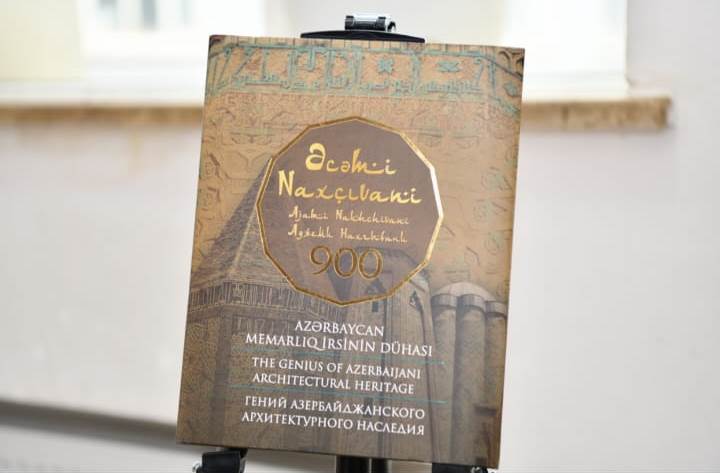 Əcəmi
Naxçıvani
Ajami Nakhchivani
Аджеми Нахчывани
900
AZƏRBAYCAN
MEMARLIQ İRSİNİN DÜHASI
THE GENIUS OF AZERBAIJANI
ARCHITECTURAL HERITAGE
ГЕНИЙ АЗЕРБАЙДЖАНСКОГО
АРХИТЕКТУРНОГО НАСЛЕДИЯ